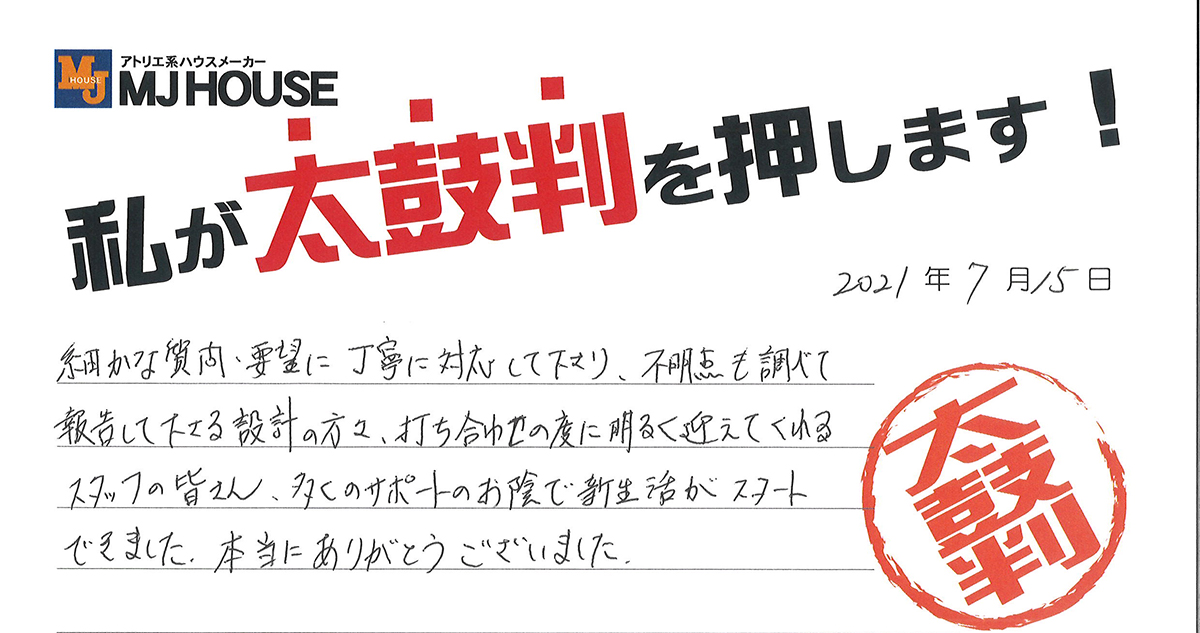 アトリエ系ハウスメーカー
MJ HOUSE
MJ HOUSE
私が太鼓判を押します!
2021年7月15日
細かな質問・要望に丁寧に対応して下さり、不明点も調べて
報告して下さる設計の方々、打ち合わせの度に明るく迎えてくれる
スタッフの皆さん、多くのサポートのお陰で新生活がスタート
できました。本当にありがとうございました。
太鼓判